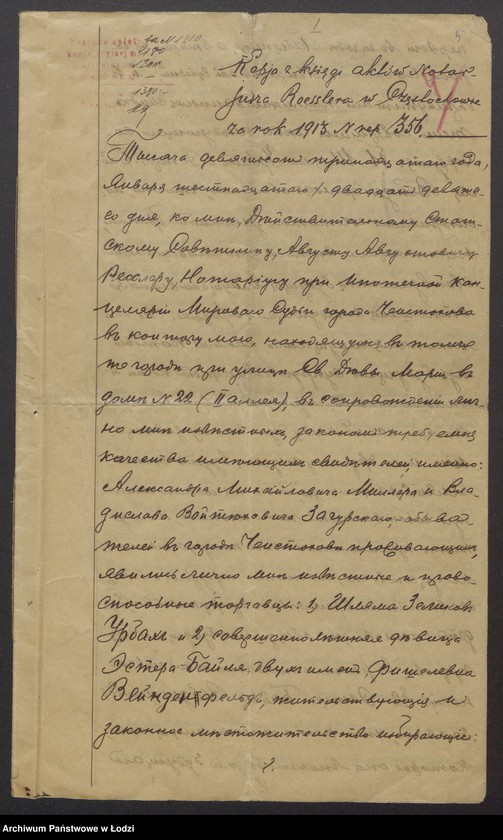 1
5
Kopja z księgi aktów Notar-
jusza Roesslera w Częstochowie
za rok 1913 N rep. 356.
Тысяча девятьсот тринадцатаго года,
Января шестнадцатаго / двадцать девята-
го дня, ко мне, Действительному Стат-
скому Советнику, Августу Августовичу
Ресслеру, Нотариусу при Ипотечной Кан-
целярии Мироваго Судьи города Ченстохова
в контору мою, находящуюся в том же
городе при улице Св. Девы Марии в
доме N 22 (II аллея), в сопровождении лич-
но мне известных, законом требуемые
качества имеющих свидетелей, именно:
Александра Михайловича Миллера и Вла-
дислава Войтеховича Загурскаго, обыва-
телей в городе Ченстохове проживающих,
явились лично мне известные и право-
способные торговцы: 1) Шляма Зеликов
Урбах и 2) совершеннолетняя девица
Эстера-Байля, двух имен Фишелевна
Вейнденфельд, жительствующия и
законное местожительство избирающие:
Archiwum Państwowe w Łodzi